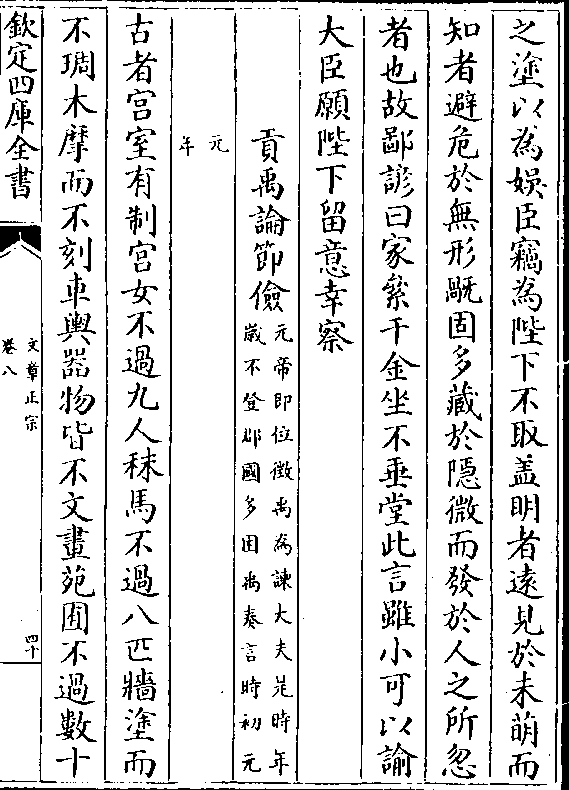 之塗以為娯臣竊為陛下不取盖明者逺見於未萌而
知者避危於無形禍固多藏於隠微而發於人之所忽
者也故鄙諺曰家絫千金坐不垂堂此言雖小可以諭
大臣願陛下留意幸察
貢禹論節儉
元帝即位徵禹為諫大夫是時年
嵗不登郡國多困禹奏言時初元
元
年
古者宫室有制宫女不過九人秣馬不過八匹牆塗而
不琱木摩而不刻車輿器物皆不文畫苑囿不過數十
欽定四庫全書
文章正宗
卷八
四十